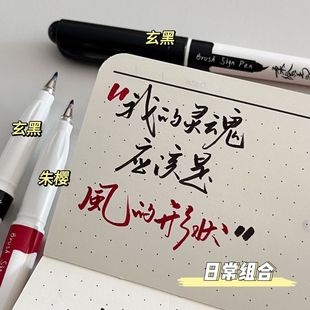 玄黑
Brush Sign Pen
玄黑
朱樱
"我的灵魂
应该是
風的形状"
日常组合